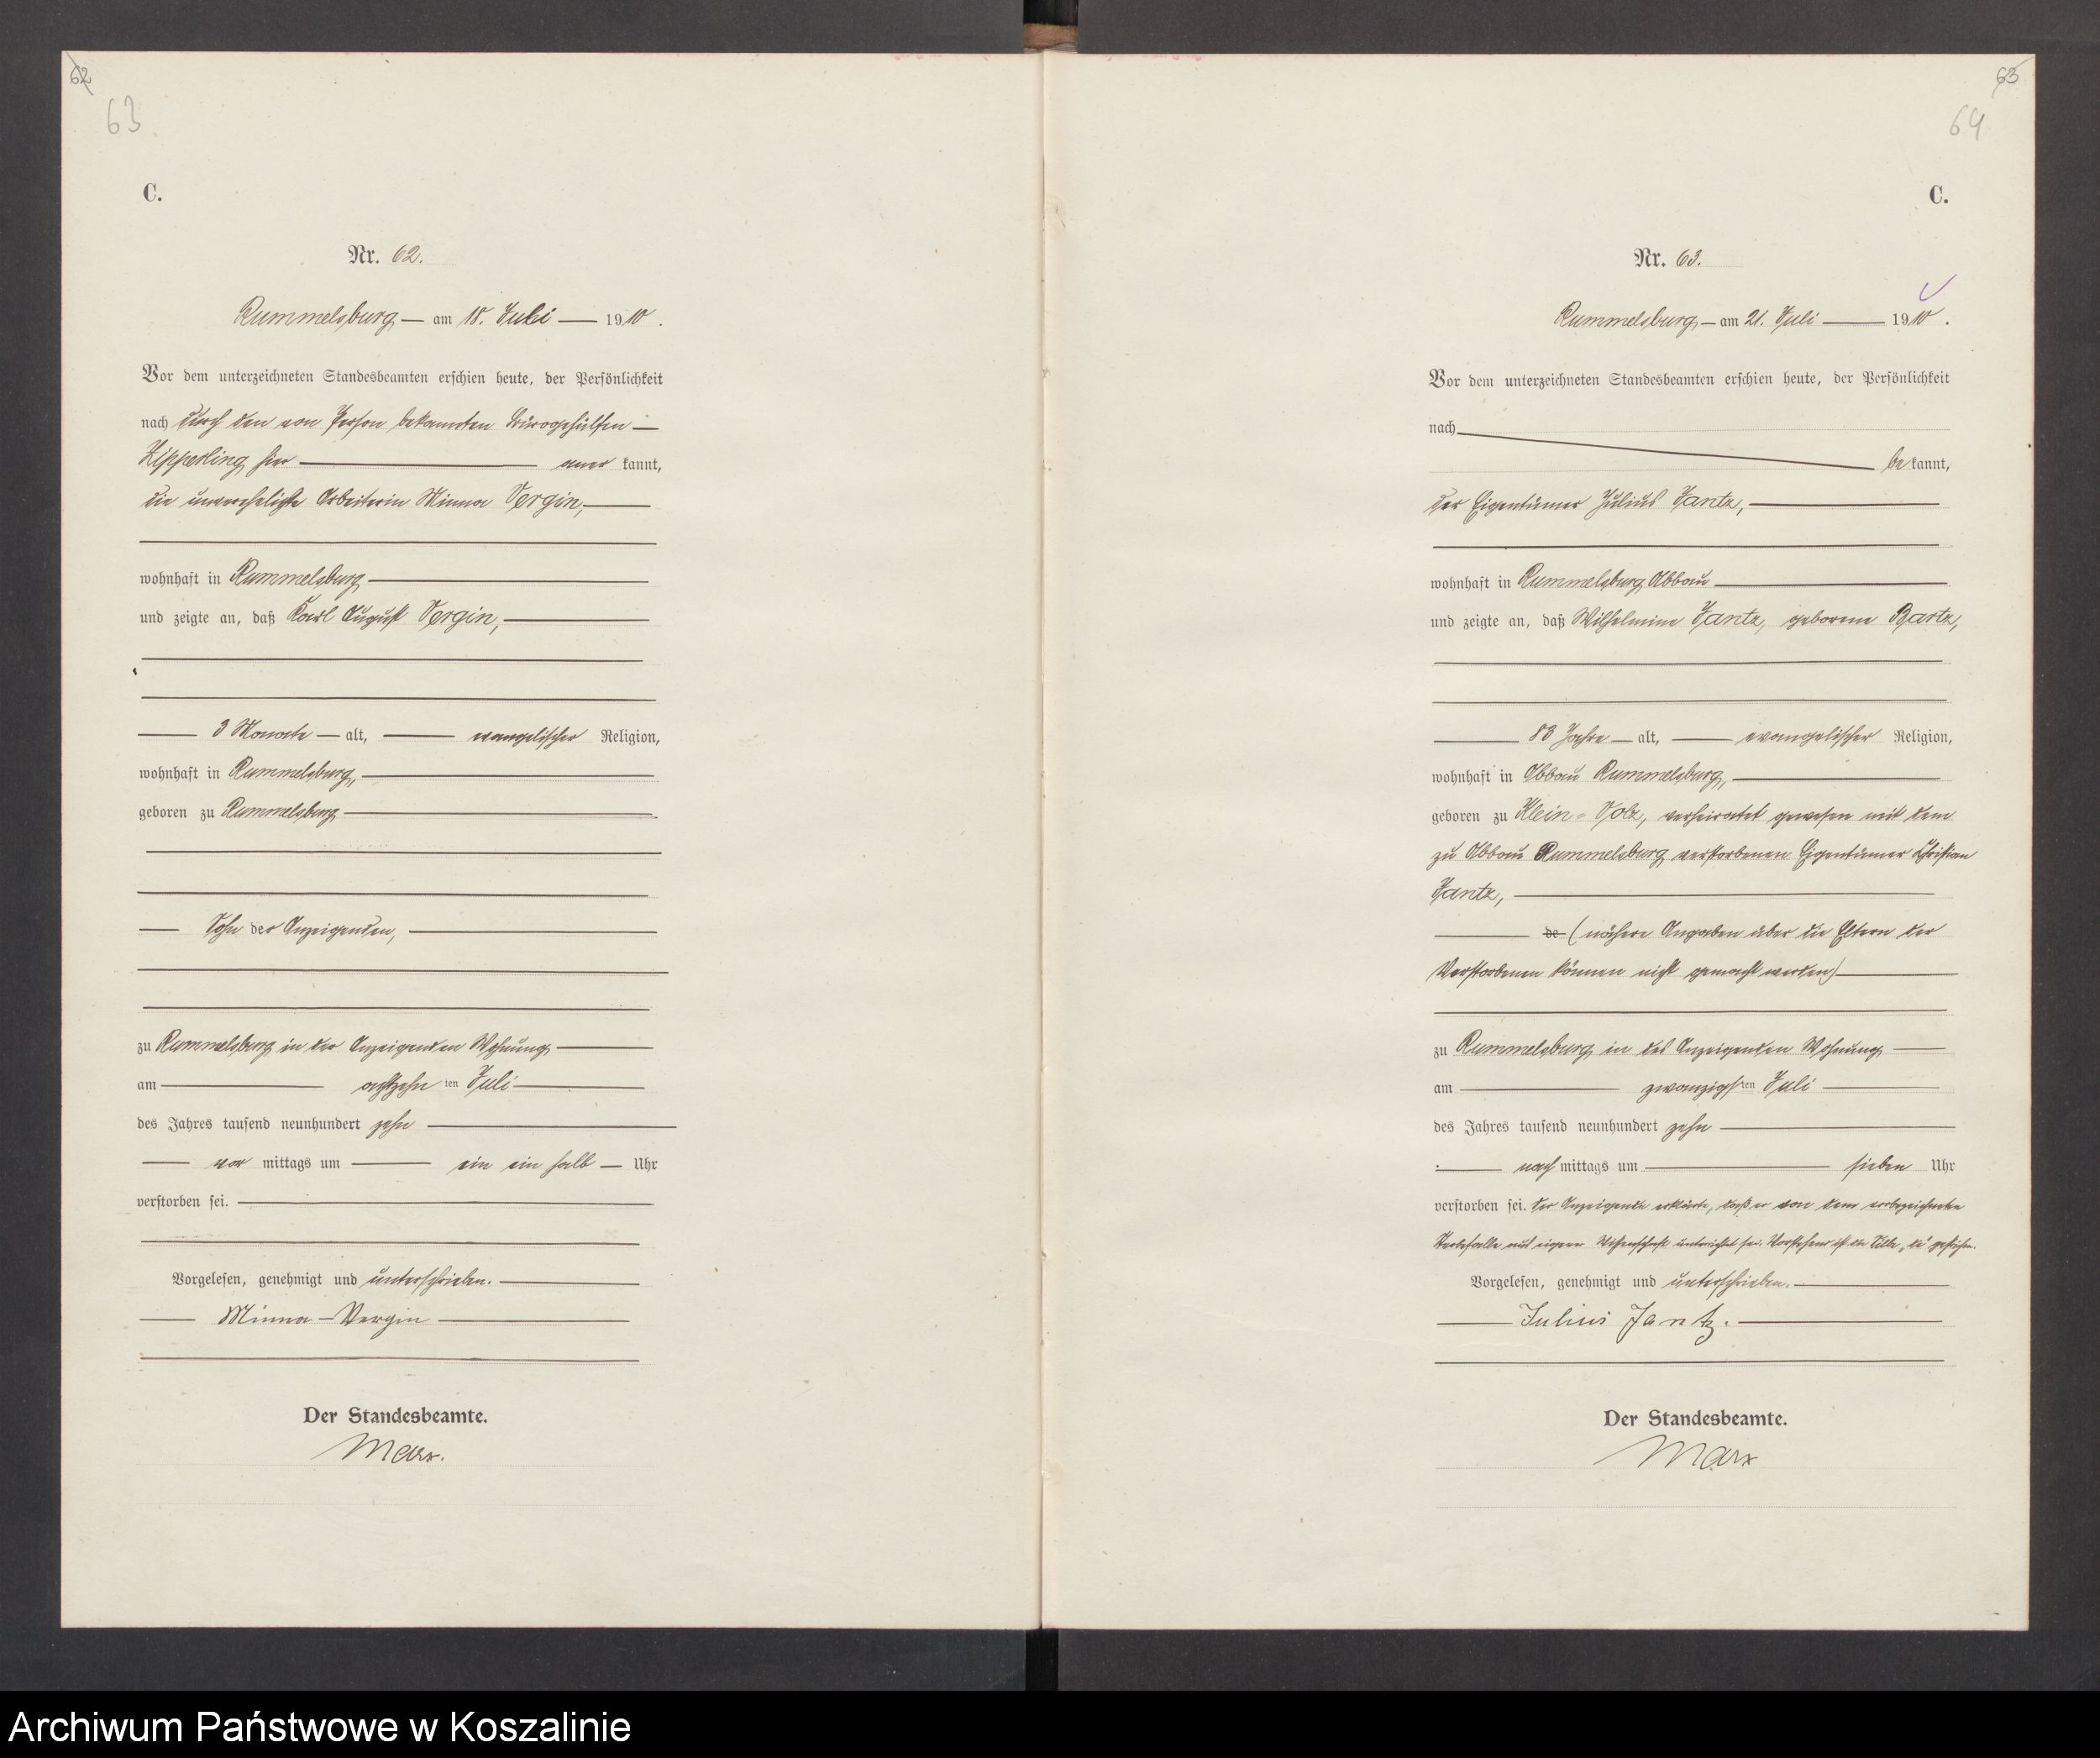 62
63
C.
Nr. 62.
Rummelsburg am 18. Juli 1910.
Vor dem unterzeichneten Standesbeamten erschien heute, der Persönlichkeit
nach durch den von Person bekannten Bürogehülfen
Zipperling hier aner kannt,
die unverehelichte Arbeiterin Minna Vergin,
wohnhaft in Rummelsburg
und zeigte an, daß Karl August Vergin,
3 Monate alt, evangelischer Religion,
wohnhaft in Rummelsburg,
geboren zu Rummelsburg
Sohn der Anzeigenden,
zu Rummelsburg in der Anzeigenden Wohnung
am achtzehn ten Juli
des Jahres tausend neunhundert zehn
vor mittags um ein ein halb Uhr
verstorben sei.
Vorgelesen, genehmigt und unterschrieben.
Minna Vergin
Der Standesbeamte.
Marx.
63
64
C.
Nr. 63.
Rummelsburg, am 21. Juli 1910.
Vor dem unterzeichneten Standesbeamten erschien heute, der Persönlichkeit
nach
be kannt,
der Eigentümer Julius Jantz,
wohnhaft in Rummelsburg Abbau
und zeigte an, daß Wilhelmine Jantz, geborene Bartz,
83 Jahre alt, evangelischer Religion,
wohnhaft in Abbau Rummelsburg,
geboren zu Klein-Volz, verheiratet gewesen mit dem
zu Abbau Rummelsburg verstorbenen Eigentümer Christian
Jantz,
de (nähere Angaben über die Eltern der
Verstorbenen können nicht gemacht werden)
zu Rummelsburg in des Anzeigenden Wohnung
am zwanzigsten Juli
des Jahres tausend neunhundert zehn
nach mittags um sieben Uhr
verstorben sei. Der Anzeigende erklärte, daß er von dem vorbezeichneten
Sterbefalle aus eigener Wissenschaft unterrichtet sei. Vorstehend ist die Silbe „de" gestrichen.
Vorgelesen, genehmigt und unterschrieben.
Julius Jantz.
Der Standesbeamte.
Marx
Archiwum Państwowe w Koszalinie